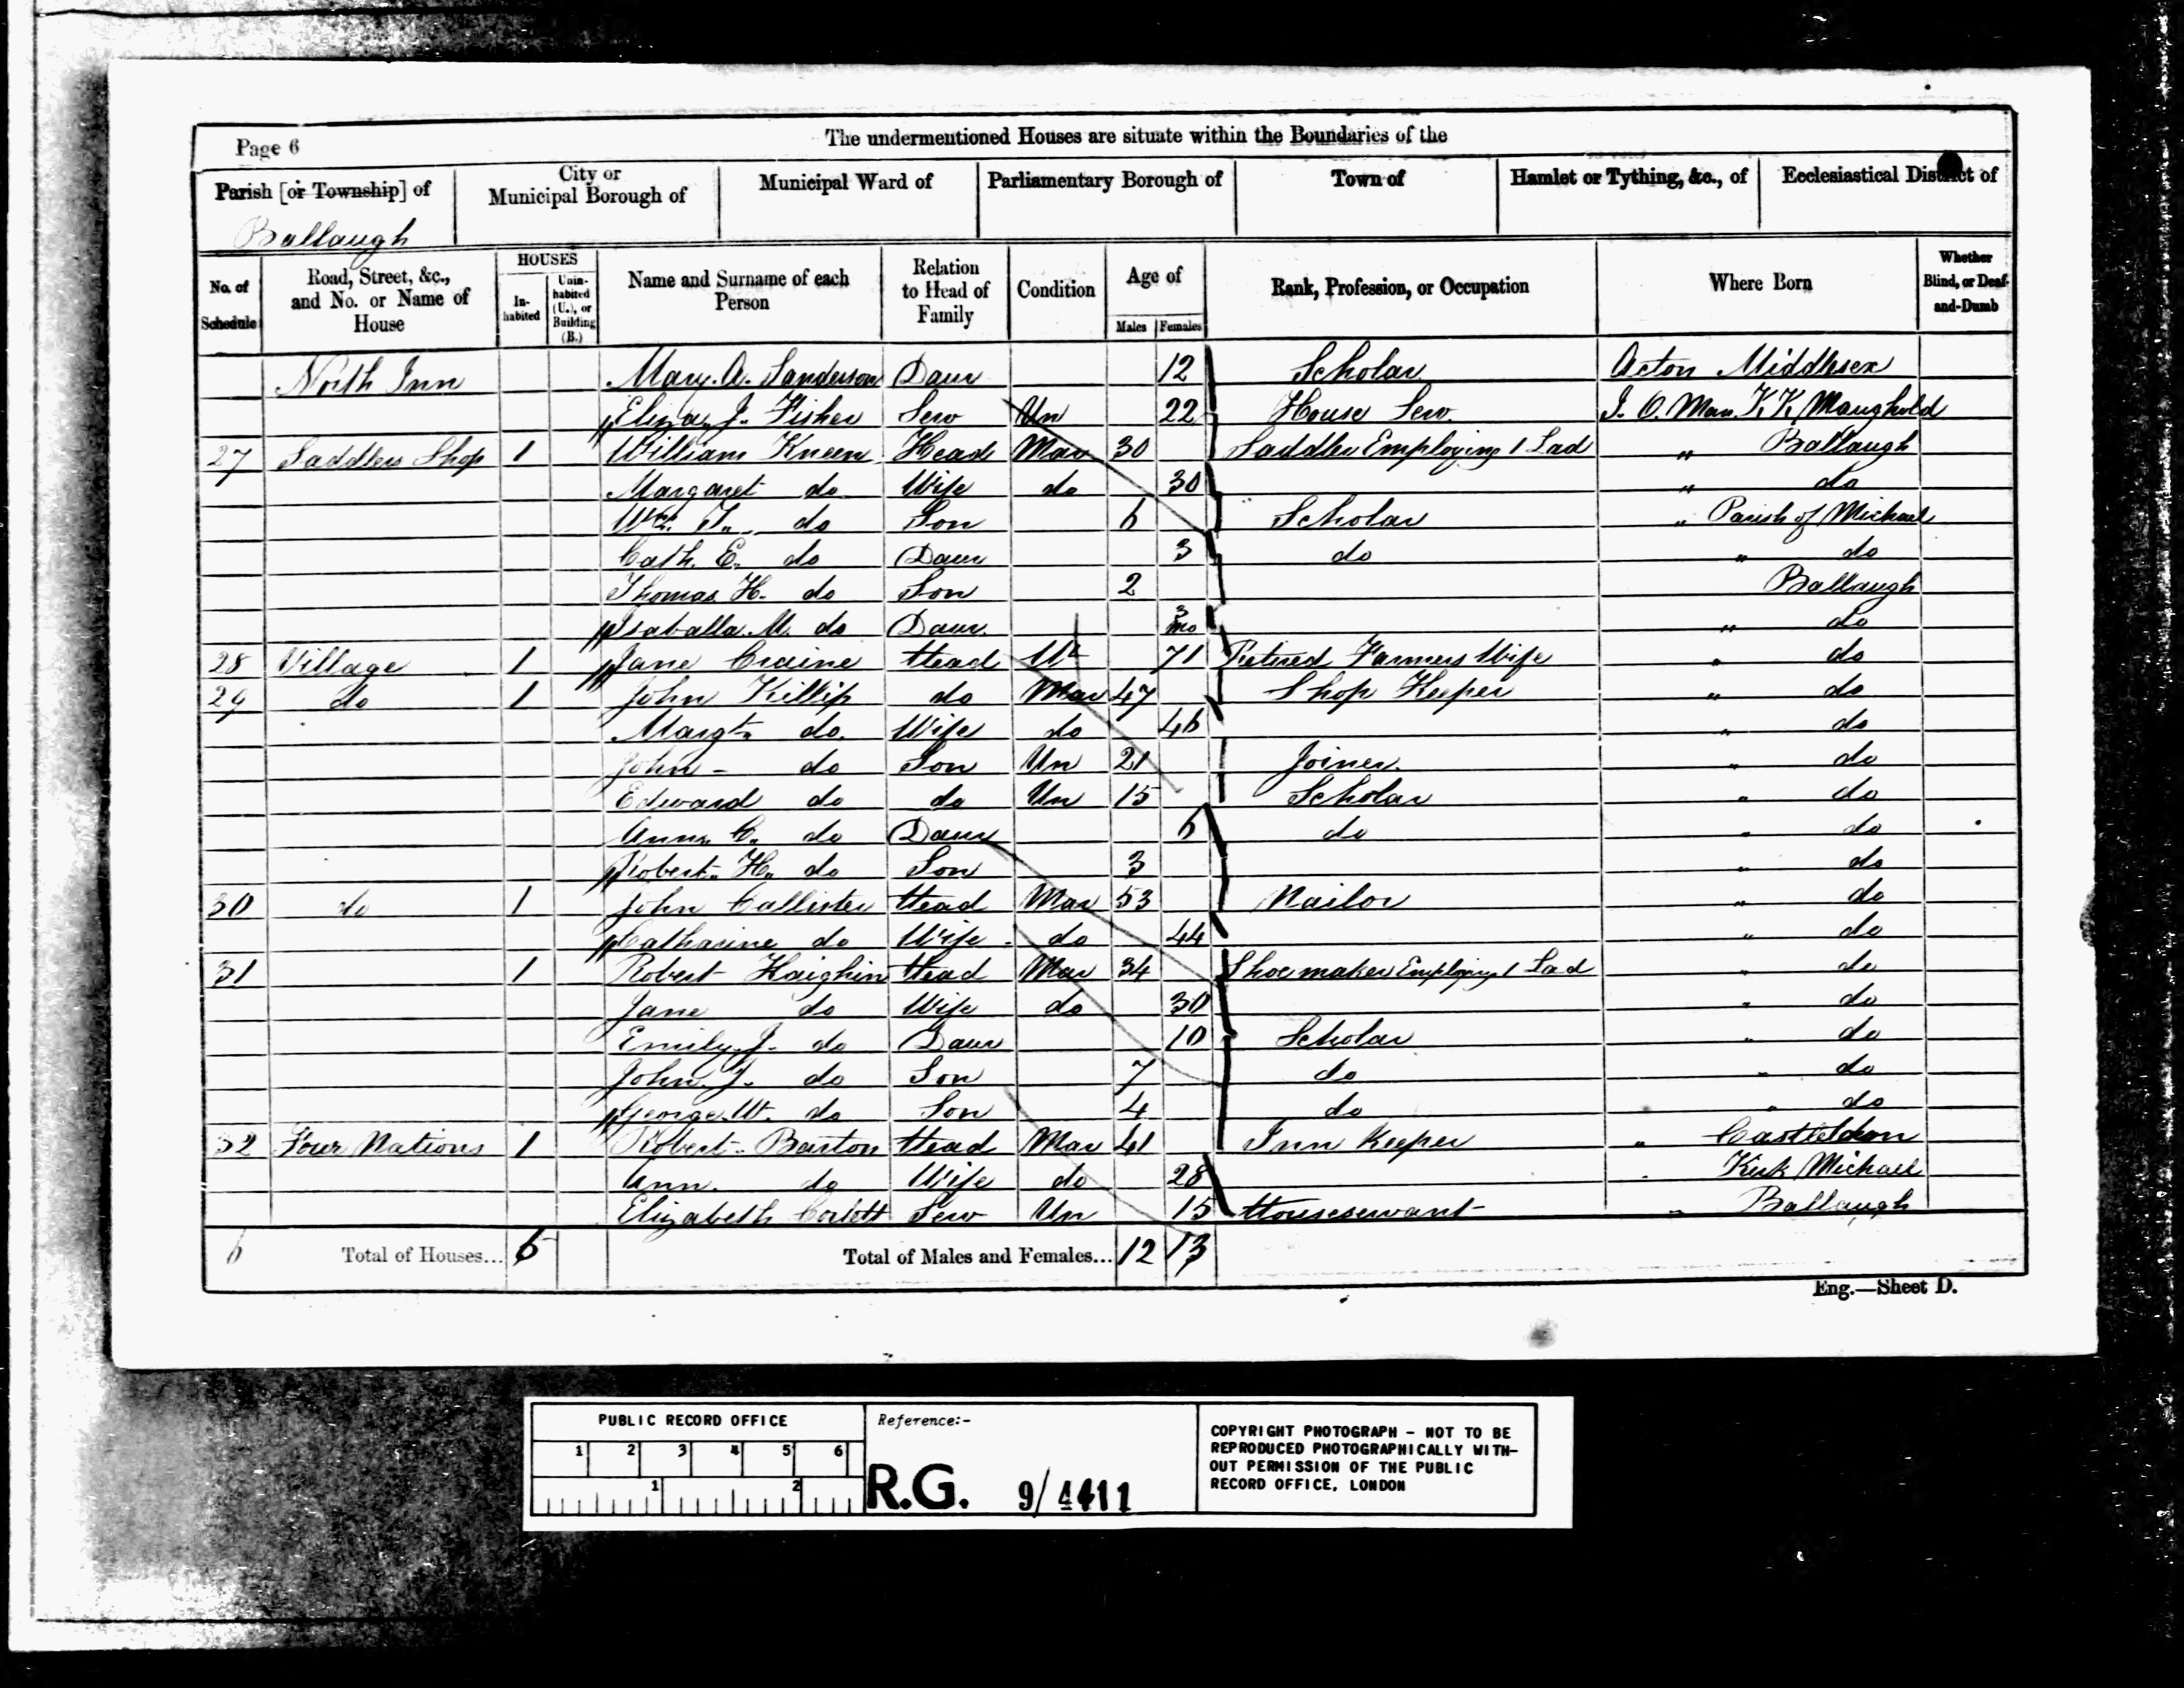 Page 6
The undermentioned Houses are situate within the Boundaries of the
Parish [or Township] of
City or Municipal Borough of
Municipal Ward of
Parliamentary Borough of
Town of
Hamlet or Tything, &c., of
Ecclesiastical District of
Ballaugh
No. of Schedule
Road, Street, &c., and No. or Name of House
HOUSES
In-habited
Unin-habited (U.), or Building (B.)
Name and Surname of each Person
Relation to Head of Family
Condition
Age of
Males Females
Rank, Profession, or Occupation
Where Born
Whether Blind, or Deaf-and-Dumb
North Inn Mary. A. Sanderson Daur 12 Scholar Acton Middlesex
Eliza. J. Fisher Serv Un 22 House Serv. I. O. Man K.K. Maughold
27 Saddlers Shop 1 William Kneen Head Mar 30 Saddler Employing 1 Lad " Ballaugh
Margaret do Wife do 30 " do
Wm. T. do Son 6 Scholar " Parish of Michael
Cath. E. do Daur 3 do " do
Thomas H. do Son 2 Ballaugh
Isaballa. M. do Daur. 3 mo " do
28 Village 1 Jane Craine Head W 71 Retired Farmers Wife " do
29 do 1 John Killip do Mar 47 Shop Keeper " do
Margt. do. Wife do 46 " do
John - do Son Un 21 Joiner. " do
Edward do do Un 15 Scholar " do
Ann. C. do Daur 6 do " do
Robert. H. do Son 3 " do
30 do 1 John Callister Head Mar 53 Nailor " do
Catharine do Wife do 44 " do
31 1 Robert Kaighin Head Mar 34 Shoemaker Employing 1 Lad " do
Jane do Wife do 30 " do
Emily. J. do Daur 10 Scholar " do
John. J. do Son 7 do " do
George. W. do Son 4 do " do
32 Four Nations 1 Robert Barton Head Mar 41 Inn Keeper "
Ann. do Wife do 28 " Kirk Michael
Elizabeth Corlett Serv Un 15 Houseservant " Ballaugh
6 Total of Houses... 6 Total of Males and Females... 12 13
Eng.—Sheet D.
PUBLIC RECORD OFFICE
1 2 3 4 5 6
1 2
Reference:-
R.G. 9/4411
COPYRIGHT PHOTOGRAPH - NOT TO BE
REPRODUCED PHOTOGRAPHICALLY WITH-
OUT PERMISSION OF THE PUBLIC
RECORD OFFICE, LONDON